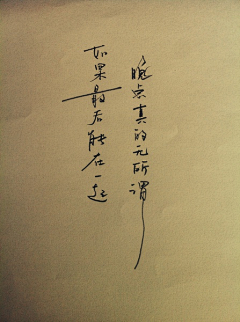 如果最后能在一起
晚点真的无所谓